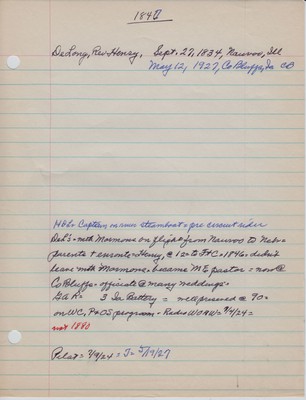 1840
DeLong, Rev Henry, Sept. 27, 1834, Nauvoo, Ill
May 12, 1927, Co Bluffs, Ia. CB
H&L = Captain man steamboat = pre circuit rider
DeL's = with Mormons on flight from Nauvoo to Neb =
parents + enroute = Henry, @ 12 = to FtC = 1846 = didn't
leave with Mormons = became ME pastor = now @
Co Bluffs = officiate @ many weddings =
GAR = 3 Ia Battery = well preserved @ 90 =
on WC, P & OS program = Radio WOAW = 7/9/24 =
not 1840
Pilot = 7/9/24 = T = 5/19/27